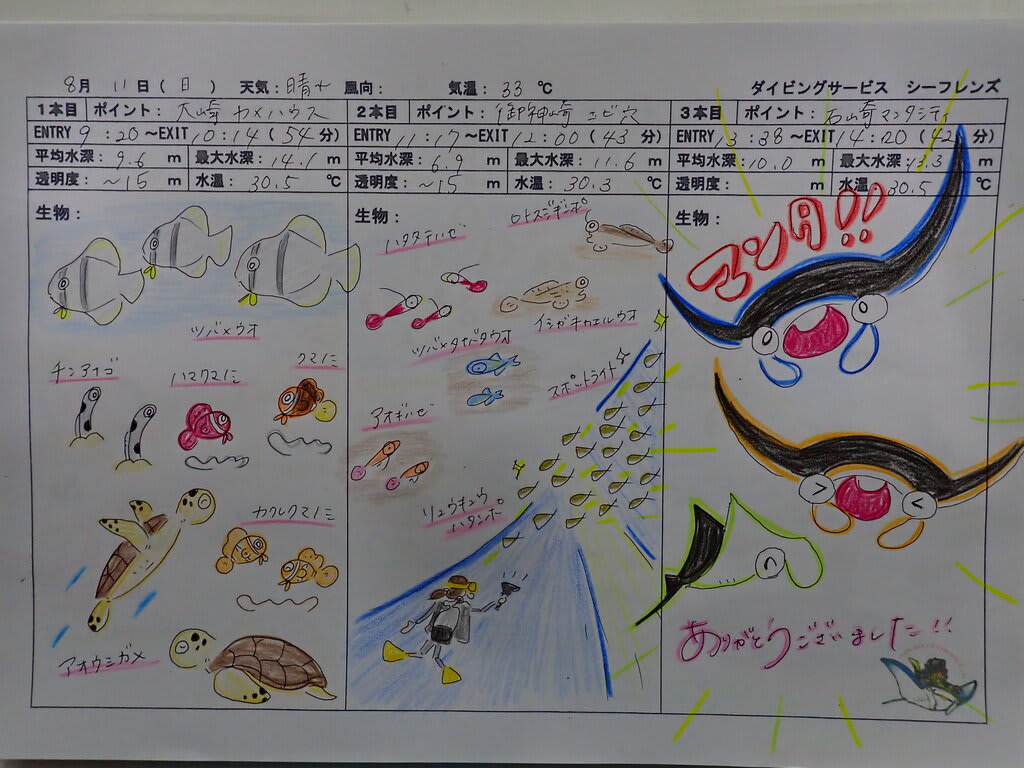 8月 11日(日) 天気:晴れ 風向: 気温:33℃ ダイビングサービス シーフレンズ
1本目 ポイント:大崎 カメハウス
ENTRY 9:20〜EXIT 10:14(54分)
平均水深:9.6m 最大水深:14.1m
透明度:~15m 水温:30.5℃
生物:
ツバメウオ
チンアナゴ
ハマクマノミ
クマノミ
カクレクマノミ
アオウミガメ
2本目 ポイント:御神崎 エビ穴
ENTRY 11:17〜EXIT 12:00(43分)
平均水深:6.9m 最大水深:11.6m
透明度:~15m 水温:30.3℃
生物:
ハタタテハゼ
イシガキカエルウオ
スポットライト
アオギハゼ
リュウキュウ
ハタンポ
3本目 ポイント:石崎マンタシティ
ENTRY 13:38〜EXIT 14:20(42分)
平均水深:10.0m 最大水深:13.3m
透明度: m 水温:30.5℃
生物:
マンタ!!
ありがとうございました!!